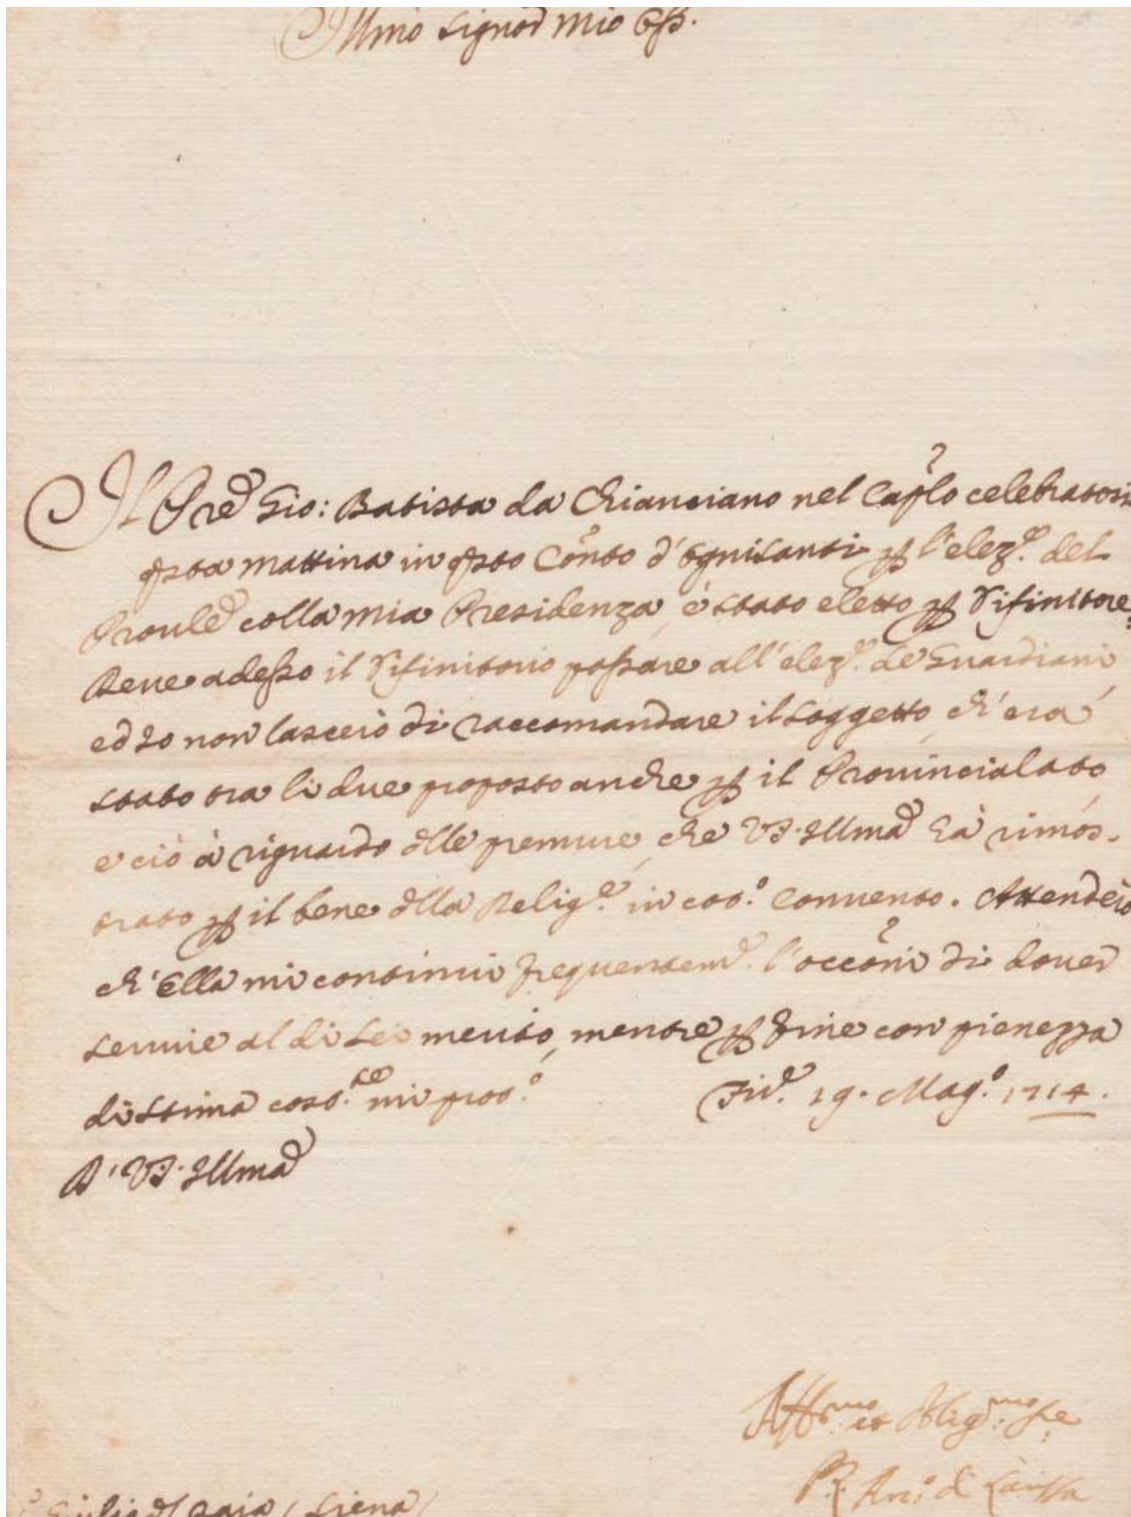 Illmo Signor mio Oss.
Il Pre Gio: Batista da Chianciano nel Caplo celebratosi
qsta mattina in qsto Conto d'Ognisanti p l'elez.e del
Proule colla mia Presidenza, è stato eletto p Difinitore.
Deue adesso il Difinitorio passare all'elez.e de Guardiani
ed Io non lascerò di raccomandare il soggetto, ch'era
stato tra li due proposto anche p il Prouincialato,
e ciò à riguardo dlle premure, che VS. Illma hà rimos-
trato p il bene dlla Relig.e in cot.o Conuento. Attenderò
ch'Ella mi continui frequentem.e l'occoni di douer
seruire al di Lei merito, mentre p fine con pienezza
di stima cost.te mi prot.o Fir.e 19. Mag.o 1714.
D' VS. Illma
Aff.mo et Oblig.mo Se
Siena